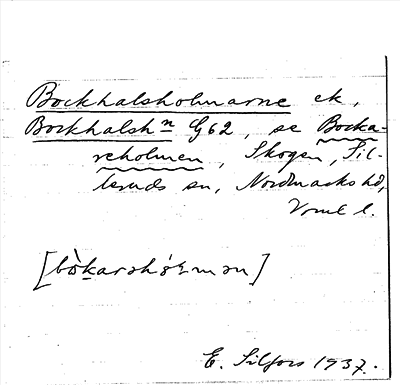 Bockhalsholmarne ek,
Bockhalsh<sup>n</sup> G62, se Bocka-
reholmen, Skogen, Sil-
leruds sn, Nordmarks hd,
Vrml l.
[bòkarəhɵɽmən]
E. Silfors 1937.